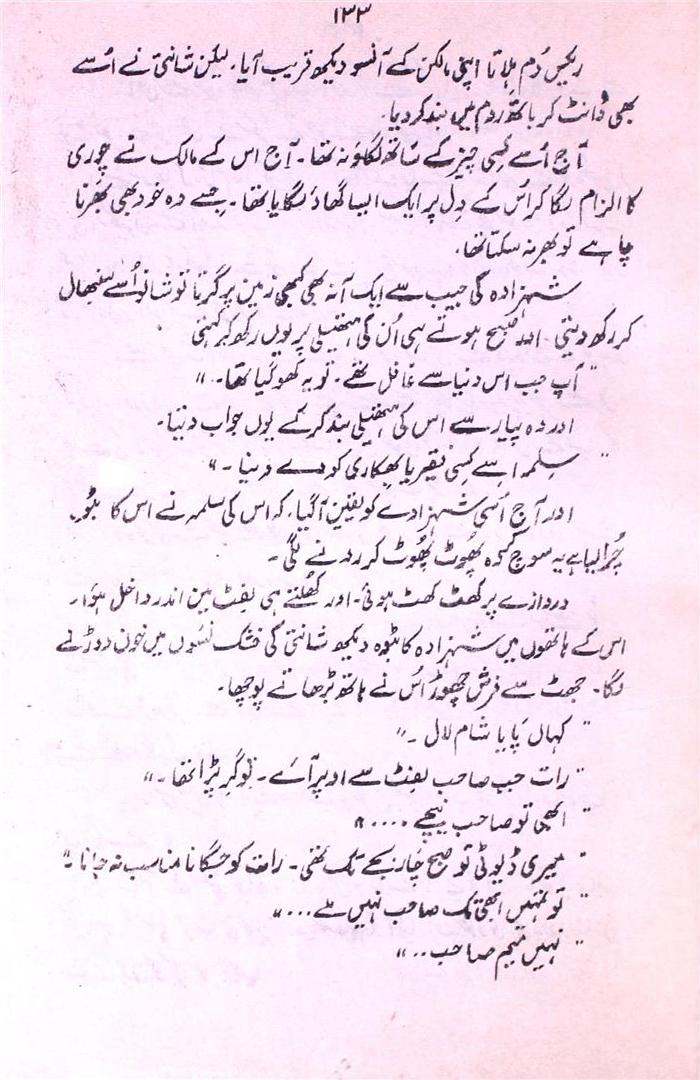 ۱۳۳
ریکس دُم ہلاتا اپنی مالکن کے آنسو دیکھ قریب آیا۔ لیکن شانتی نے اُسے
بھی ڈانٹ کر باتھ روم میں بند کر دیا۔
آج اُسے کسی چیز کے ساتھ لگاؤ نہ تھا۔ آج اس کے مالک نے چوری
کا الزام لگا کر اُس کے دِل پر ایک ایسا گھاؤ لگایا تھا۔ جسے وہ خود بھی بھرنا
چاہے تو بھر نہ سکتا تھا۔
شہزادہ کی جیب سے ایک آنہ بھی کبھی زمین پر گرتا تو شانو اُسے سنبھال
کر رکھ دیتی۔ اور صبح ہوتے ہی اُن کی ہتھیلی پر یوں رکھ کر کہتی
" آپ جب اس دنیا سے غافل تھے۔ تو یہ کھو گیا تھا۔ "
اور وہ پیار سے اس کی ہتھیلی بند کر کے یوں جواب دیتا۔
" سلمہ اسے کسی فقیر یا بھکاری کو دے دینا۔ "
اور آج اُسی شہزادے کو یقین آ گیا، کہ اس کی سلمہ نے اس کا بٹوہ
چُرا لیا ہے یہ سوچ کر وہ پھُوٹ پھُوٹ کر رونے لگی۔
دروازے پر کھٹ کھٹ ہوئی۔ اور کھُلتے ہی لفٹ مین اندر داخل ہوا۔
اس کے ہاتھوں میں شہزادہ کا بٹوہ دیکھ شانتی کی خشک نسوں میں خون دوڑنے
لگا۔ جھٹ سے فرش چھوڑ اُس نے ہاتھ بڑھاتے پوچھا۔
" کہاں پایا شام لال۔ "
" رات جب صاحب لفٹ سے اوپر آئے۔ تو گِر پڑا تھا۔ "
" ابھی تو صاحب نیچے .... "
" میری ڈیوٹی تو صبح چار بجے تک تھی۔ رات کو جگانا مناسب نہ جانا۔ "
" تو تمہیں ابھی تک صاحب نہیں ملے ... "
" نہیں میم صاحب .. "